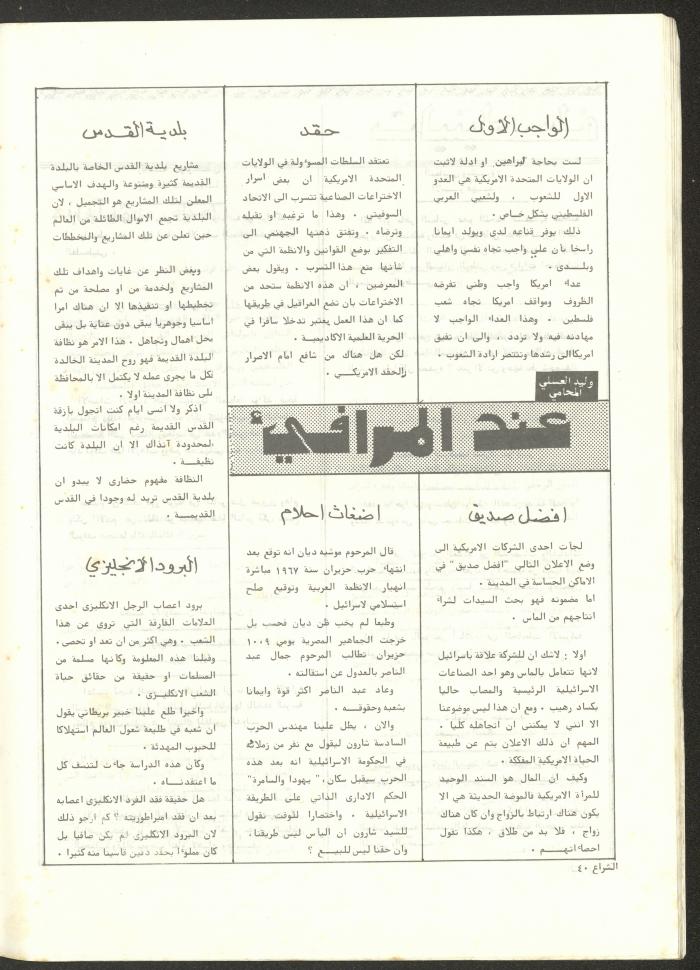 الواجب الاول
لست بحاجة لبراهين او ادلة لاثبت
ان الولايات المتحدة الامريكية هي العدو
الاول للشعوب ، ولشعبي العربي
الفلسطيني بشكل خاص .
ذلك يوفر قناعه لدي ويولد ايمانا
راسخا بان علي واجب تجاه نفسي واهلي
وبلدي .
عداء امريكا واجب وطني تفرضه
الظروف ومواقف امريكا تجاه شعب
فلسطين . وهذا العداء الواجب لا
مهادنه فيه ولا تردد ، والى ان تفيق
امريكاالى رشدها وتنتصر ارادة الشعوب .
حقد
تعتقد السلطات المسوءولة في الولايات
المتحدة الامريكية ان بعض اسرار
الاختراعات الصناعية تتسرب الى الاتحاد
السوفيتي . وهذا ما ترغبه او تقبله
وترضاه . وتفتق ذهنها الجهنمي الى
التفكير بوضع القوانين والانظمة التي من
شأنها منع هذا التسرب . ويقول بعض
المعرضين ، ان هذه الانظمة ستحد من
الاختراعات بان تضع العراقيل في طريقها
كما ان هذا العمل يعتبر تدخلا سافرا في
الحرية العلمية الاكاديمية .
لكن هل هناك من شافع امام الاصرار
والحقد الامريكي .
بلدية القدس
مشاريع بلدية القدس الخاصة بالبلدة
القديمة كثيرة ومتنوعة والهدف الاساسي
المعلن لتلك المشاريع هو التجميل ، لان
البلدية تجمع الاموال الطائلة من العالم
حين تعلن عن تلك المشاريع والمخططات
وبغض النظر عن غايات واهداف تلك
المشاريع ولخدمة من او مصلحة من تم
تخطيطها او تنفيذها الا ان هناك امرا
اساسيا وجوهريا يبقى دون عناية بل يبقى
محل اهمال وتجاهل . هذا الامر هو نظافة
البلدة القديمة فهو روح المدينة الخالدة
فكل ما يجرى عمله لا يكتمل الا بالمحافظة
على نظافة المدينة اولا .
اذكر ولا انسى ايام كنت اتجول بازقة
القدس القديمة رغم امكانات البلدية
المحدودة آنذاك الا ان البلدة كانت
نظيفة .
النظافة مفهوم حضارى لا يبدو ان
بلدية القدس تريد له وجودا في القدس
القديمة .
وليد العسلي
المحامي
عند المرافيء
افضل صديق
لجأت احدى الشركات الامريكية الى
وضع الاعلان التالي "افضل صديق" في
الاماكن الحساسة في المدينة .
اما مضمونه فهو بحث السيدات لشراء
انتاجهم من الماس .
اولا : لاشك ان للشركة علاقة باسرائيل
لانها تتعامل بالماس وهو احد الصناعات
الاسرائيلية الرئيسية والمصاب حاليا
بكساد رهيب . ومع ان هذا ليس موضوعنا
الا انني لا يمكنني ان اتجاهله كليا .
المهم ان ذلك الاعلان ينم عن طبيعة
الحياة الامريكية المفككة .
وكيف ان المال هو السند الوحيد
للمرأة الامريكية فالموضة الحديثة هي الا
يكون هناك ارتباط بالزواج وان كان هناك
زواج ، فلا بد من طلاق ، هكذا تقول
احصاءاتهم .
اضغاث احلام
قال المرحوم موشيه ديان انه توقع بعد
انتهاء حرب حزيران سنة ١٩٦٧ مباشرة
انهيار الانظمة العربية وتوقيع صلح
استسلامي لاسرائيل .
وطبعا لم يخب ظن ديان فحسب بل
خرجت الجماهير المصرية يومي ١٠،٩
حزيران تطالب المرحوم جمال عبد
الناصر بالعدول عن استقالته .
وعاد عبد الناصر اكثر قوة وايمانا
بشعبه وحقوقه .
والان ، يطل علينا مهندس الحرب
السادسة شارون ليقول مع نفر من زملائه
في الحكومة الاسرائيلية انه بعد هذه
الحرب سيقبل سكان "يهودا والسامرة"
الحكم الادارى الذاتي على الطريقة
الاسرائيلية . واختصارا للوقت نقول
للسيد شارون ان اليأس ليس طريقنا،
وان حقنا ليس للبيع ؟
البرود الانجليزي
برود اعصاب الرجل الانكليزى احدى
العلامات الفارقة التي تروى عن هذا
الشعب . وهي اكثر من ان تعد او تحصى .
وقبلنا هذه المعلومة وكأنها مسلمة من
المسلمات او حقيقة من حقائق حياة
الشعب الانكليزى .
واخيرا طلع علينا خبير بريطاني يقول
ان شعبه في طليعة شعول العالم استهلاكا
للحبوب المهدئة .
وكأن هذه الدراسة جاءت لتنسف كل
ما اعتقدناه .
هل حقيقة فقد الفرد الانكليزى اعصابه
بعد ان فقد امبراطوريته ؟ كم ارجو ذلك
لان البرود الانكليزى لم يكن صافيا بل
كان مملوءا بحقد دفين قاسينا منه كثيرا .
الشراع ٤٠